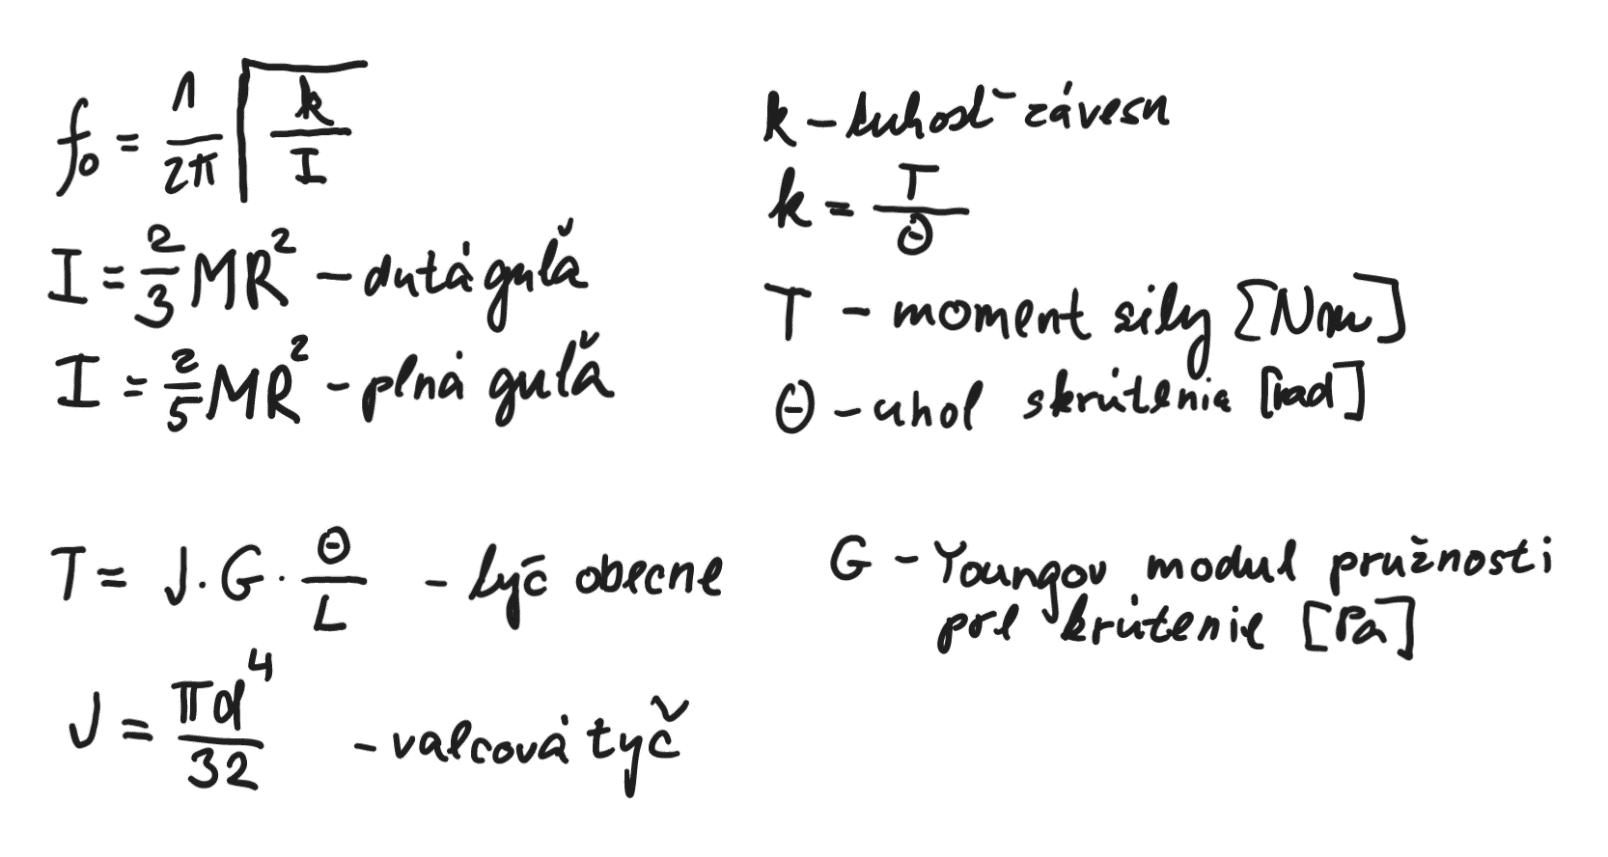 f₀ = 1/2π √(k/I)
I = 2/3 MR² – dutá guľá
I = 2/5 MR² – plná guľá
k – tuhosť závesu
k = T/Θ
T – moment sily [Nm]
Θ – uhol skrútenia [rad]
T = J · G · Θ/L – tyč obecne
J = πd⁴/32 – valcová tyč
G – Youngov modul pružnosti
pre krútenie [Pa]